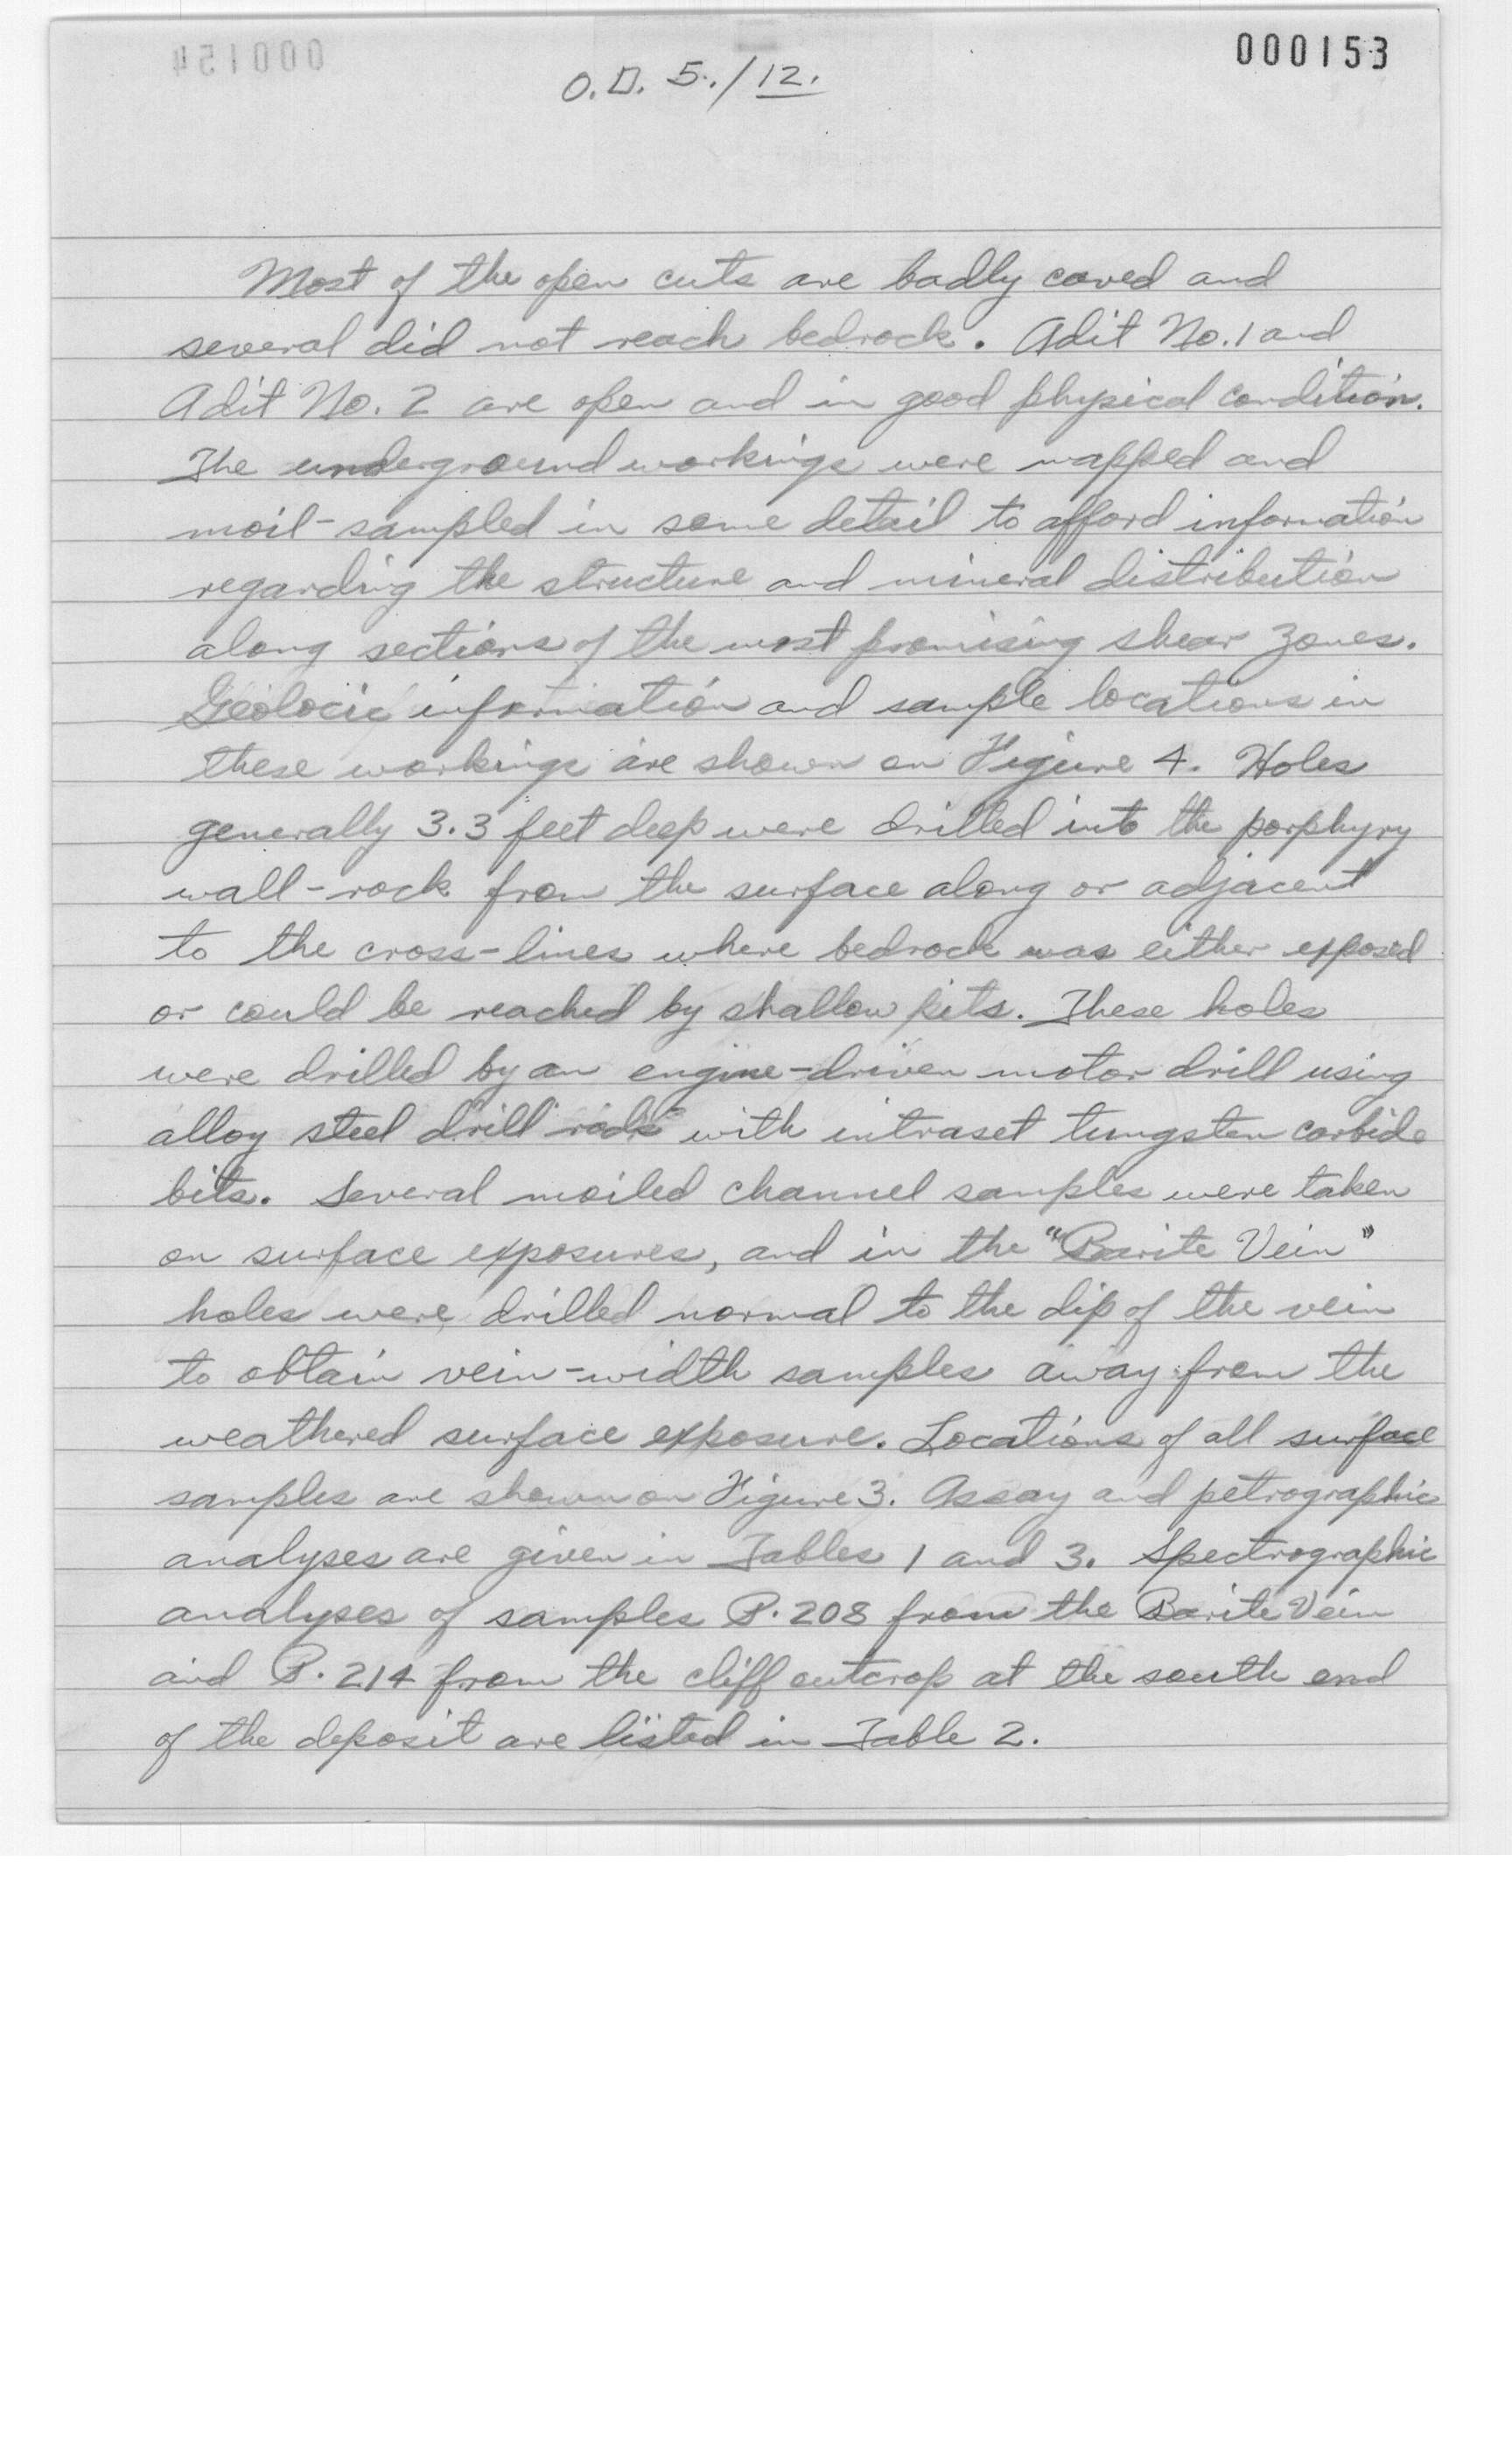 000153
O.D. 5./12.
Most of the open cuts are badly caved and
several did not reach bedrock. Adit No. 1 and
Adit No. 2 are open and in good physical condition.
The underground workings were mapped and
moil-sampled in some detail to afford information
regarding the structure and mineral distribution
along sections of the most promising shear zones.
Geolocic information and sample locations in
these workings are shown on Figure 4. Holes
generally 3.3 feet deep were drilled into the porphyry
wall-rock from the surface along or adjacent
to the cross-lines where bedrock was either exposed
or could be reached by shallow pits. These holes
were drilled by an engine-driven motor drill using
alloy steel drill rods with intraset tungsten carbide
bits. Several moiled channel samples were taken
on surface exposures, and in the "Barite Vein"
holes were drilled normal to the dip of the vein
to obtain vein-width samples away from the
weathered surface exposure. Locations of all surface
samples are shown on Figure 3. Assay and petrographic
analyses are given in Tables 1 and 3. Spectrographic
analyses of samples P.208 from the Barite Vein
and P.214 from the cliff outcrop at the south end
of the deposit are listed in Table 2.